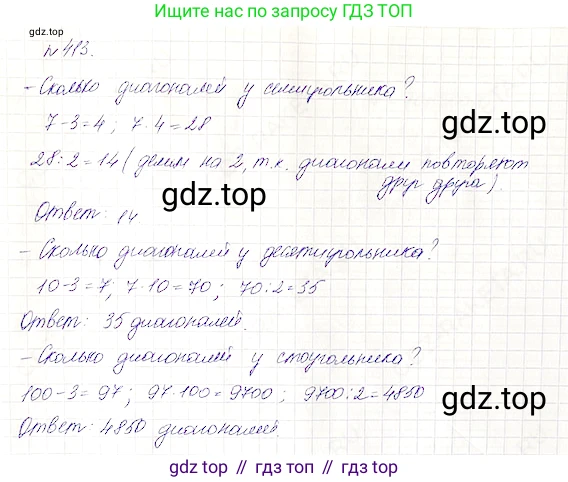 Ищите нас по запросу ГДЗ ТОП
gdz.top
№ 413.
- Сколько диагоналей у семиугольника?
7-3=4; 7·4=28
gdz.top
28:2=14 (делим на 2, т.к. диагонали повторяют
друг друга)
gdz.top
Ответ: 14
- Сколько диагоналей у десятиугольника?
10-3=7; 7·10=70; 70:2=35
gdz.top
Ответ: 35 диагоналей.
- Сколько диагоналей у стоугольника?
100-3=97; 97·100=9700; 9700:2=4850
Ответ: 4850 диагоналей
gdz top // гдз топ // gdz.top